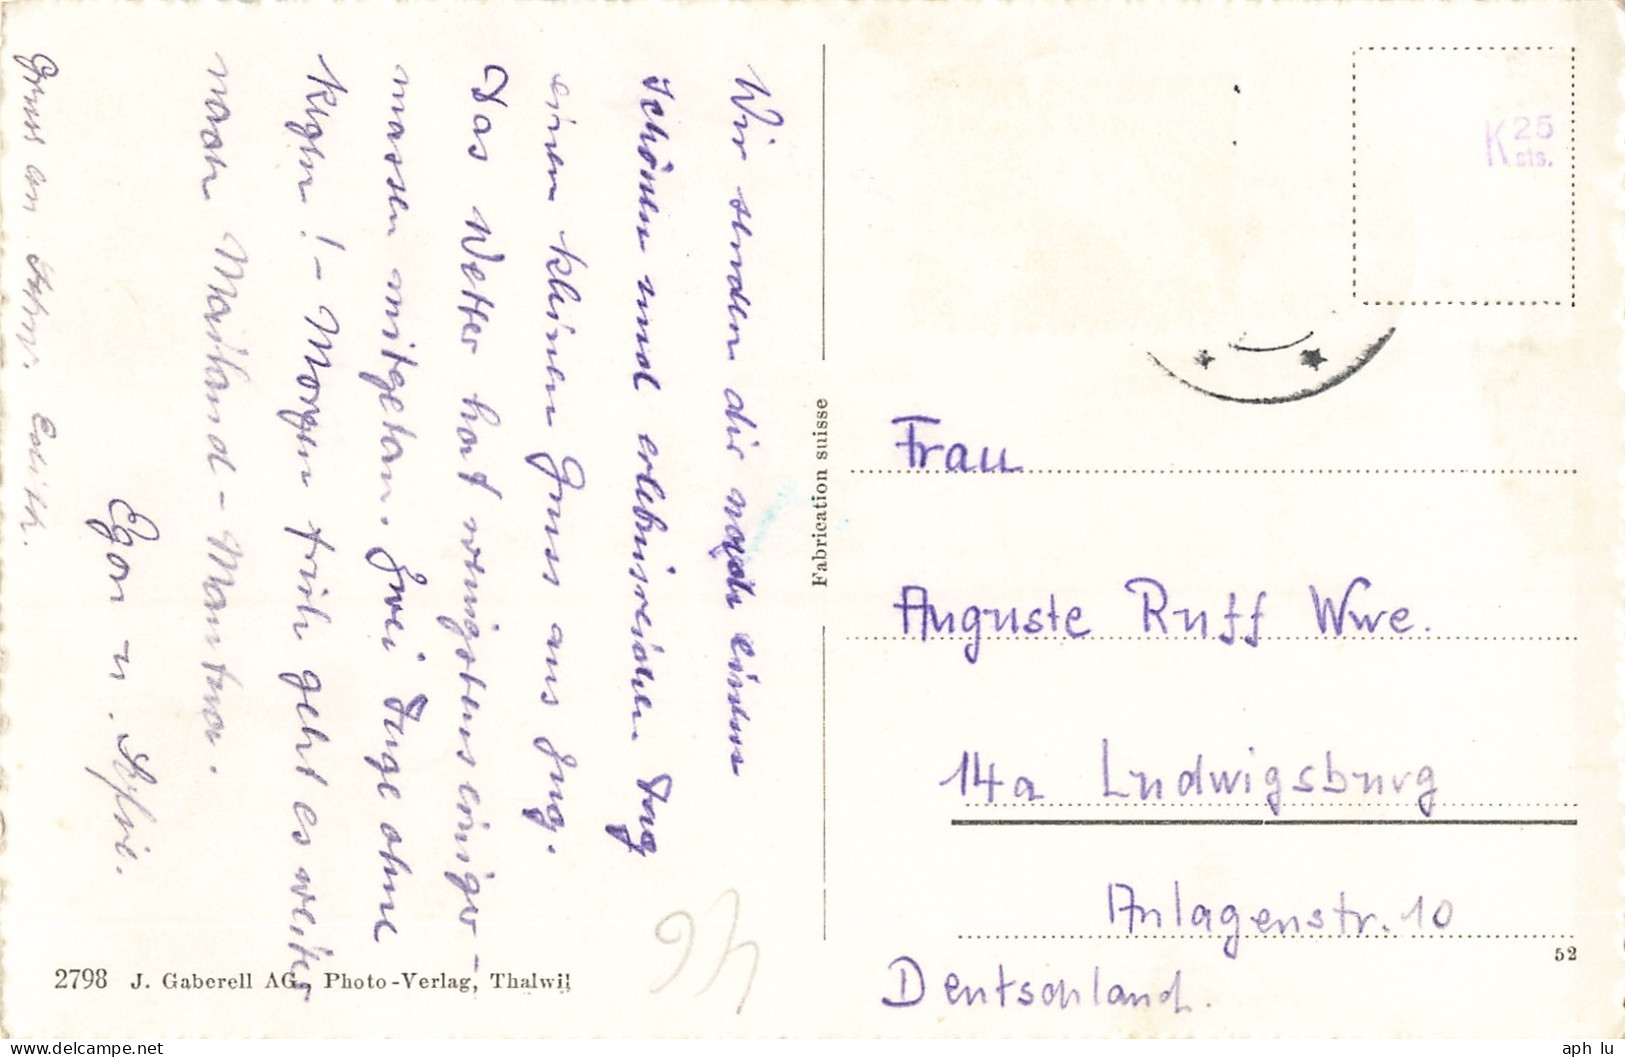 Wir senden dir nach einem
schönen und erlebnisreichen Tag
einen kleinen Gruss aus Zug.
Das Wetter hat wenigstens einiger-
massen mitgetan. Zwei Tage ohne
Regen! - Morgen früh geht es weiter
nach Mailand - Mantua.
Egon u. Sylvie.
Gruss an Fam. Erlith.
2798 J. Gaberell AG., Photo-Verlag, Thalwil
Fabrication suisse
K 25
cts.
Frau
Auguste Ruff Wwe.
14a Ludwigsburg
Anlagenstr. 10
52
Deutschland.
www.delcampe.net
aph lu